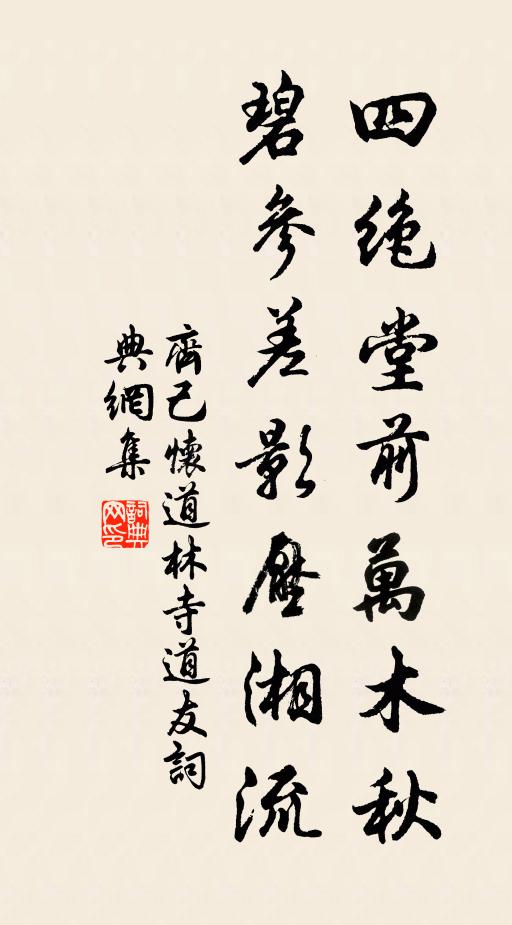 四絶堂前萬木秋
碧參差影壓湘流
齊己懷道林寺道友詞
典網集
詞典
网印